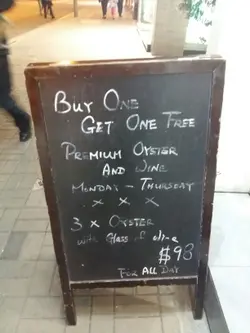 Buy One
Get One Free
Premium Oyster
and Wine
Monday - Thursday
x x x
3 x Oyster
with Glass of Wine
$98
For All Day